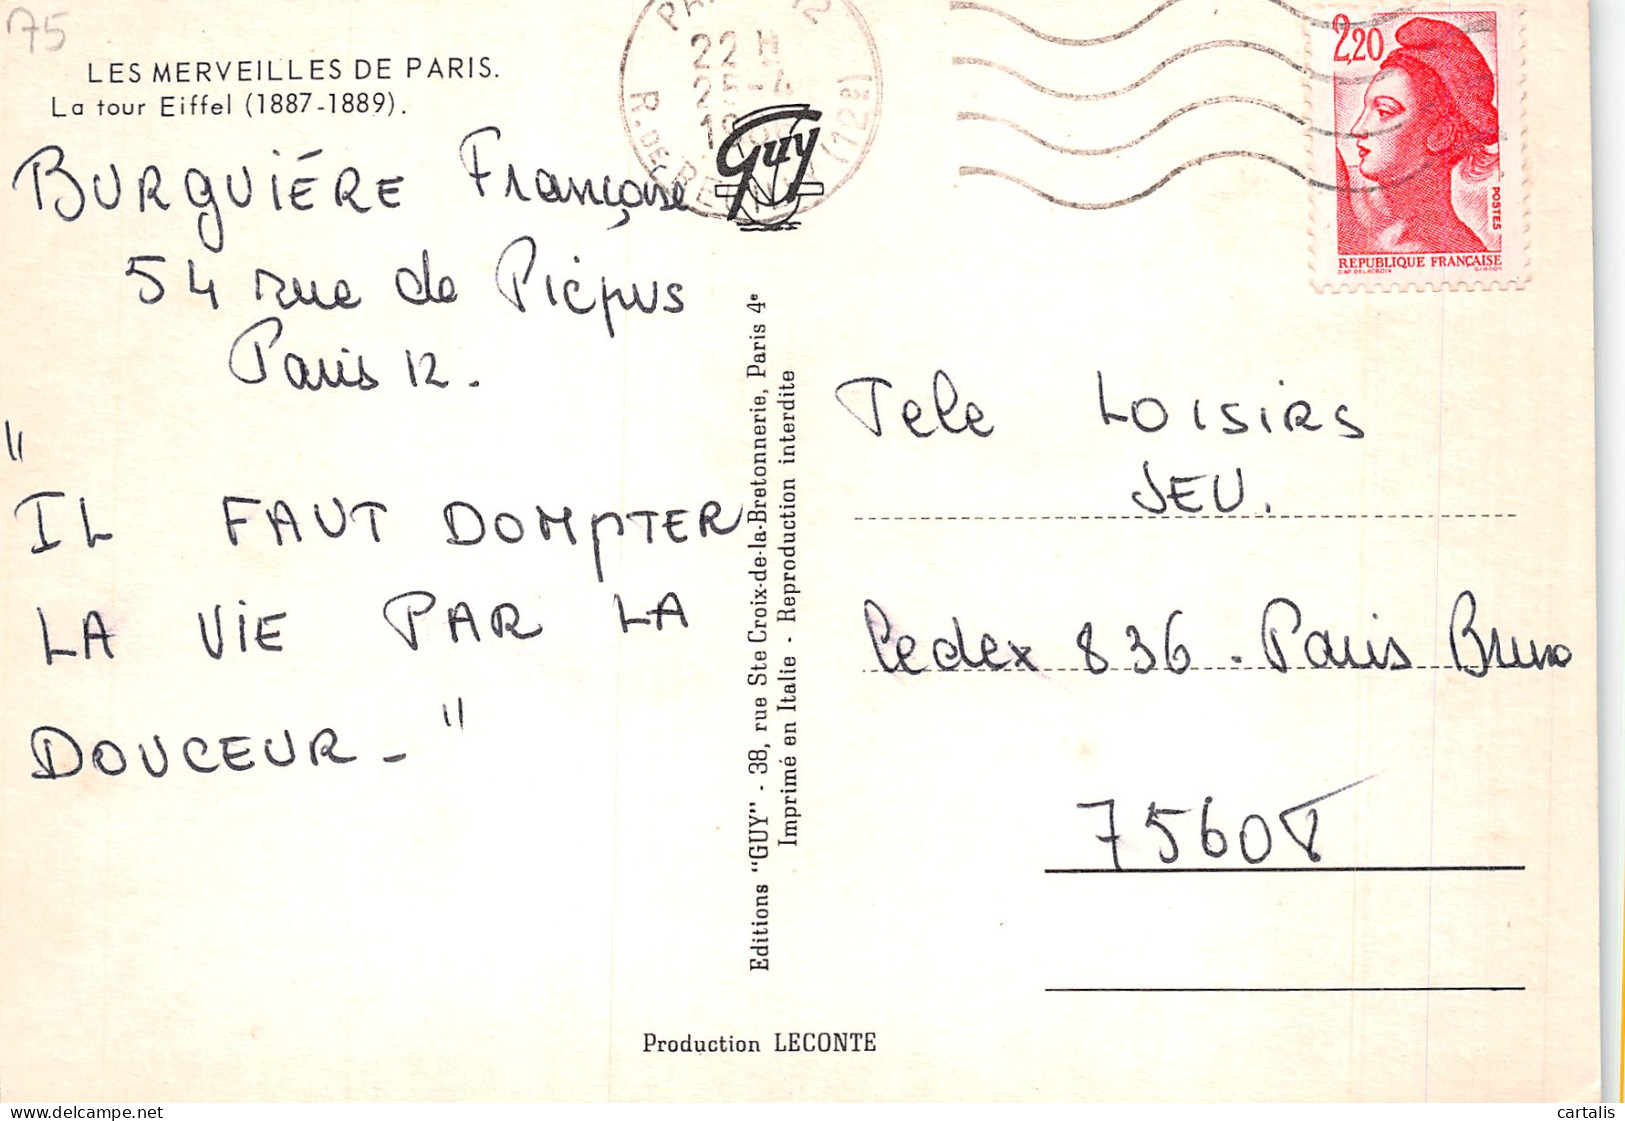 75
LES MERVEILLES DE PARIS.
La tour Eiffel (1887-1889).
BURGUIÉRE Françoise
54 rue de Picpus
Paris 12.
"
IL FAUT DOMPTER
LA VIE PAR LA
DOUCEUR - "
22 H
25-4
Guy
Editions "GUY" - 38, rue Ste Croix-de-la-Bretonnerie, Paris 4e
Imprimé en Italie - Reproduction interdite
2,20
POSTES
REPUBLIQUE FRANÇAISE
Tele LOISIRS
JEU.
Cedex 836 - Paris Brune
75608
Production LECONTE
delcampe.net
cartalis